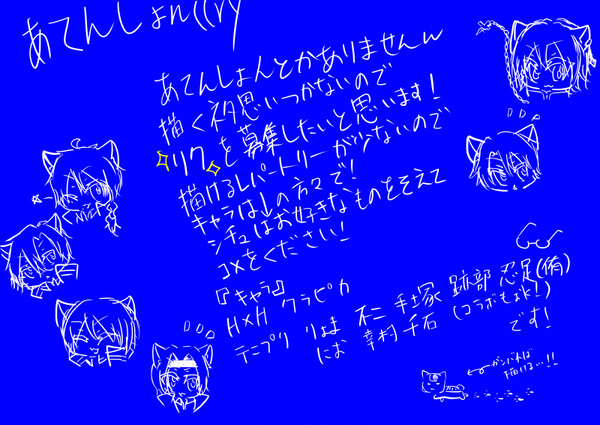 あてんしょん((ry
あてんしょんとかありませんw
描くネタ思いつかないので
リクを募集したいと思います!
描けるレパートリーが少ないので
キャラは↓の方々で!
シチュはお好きなものをそえて
コメをください!
『キャラ』
H×H クラピカ
テニプリ りょま 不二 手塚 跡部 忍足(侑)
にお 幸村 千石 (コラボもok!)
です!
←ガンバれば
描ける…!!